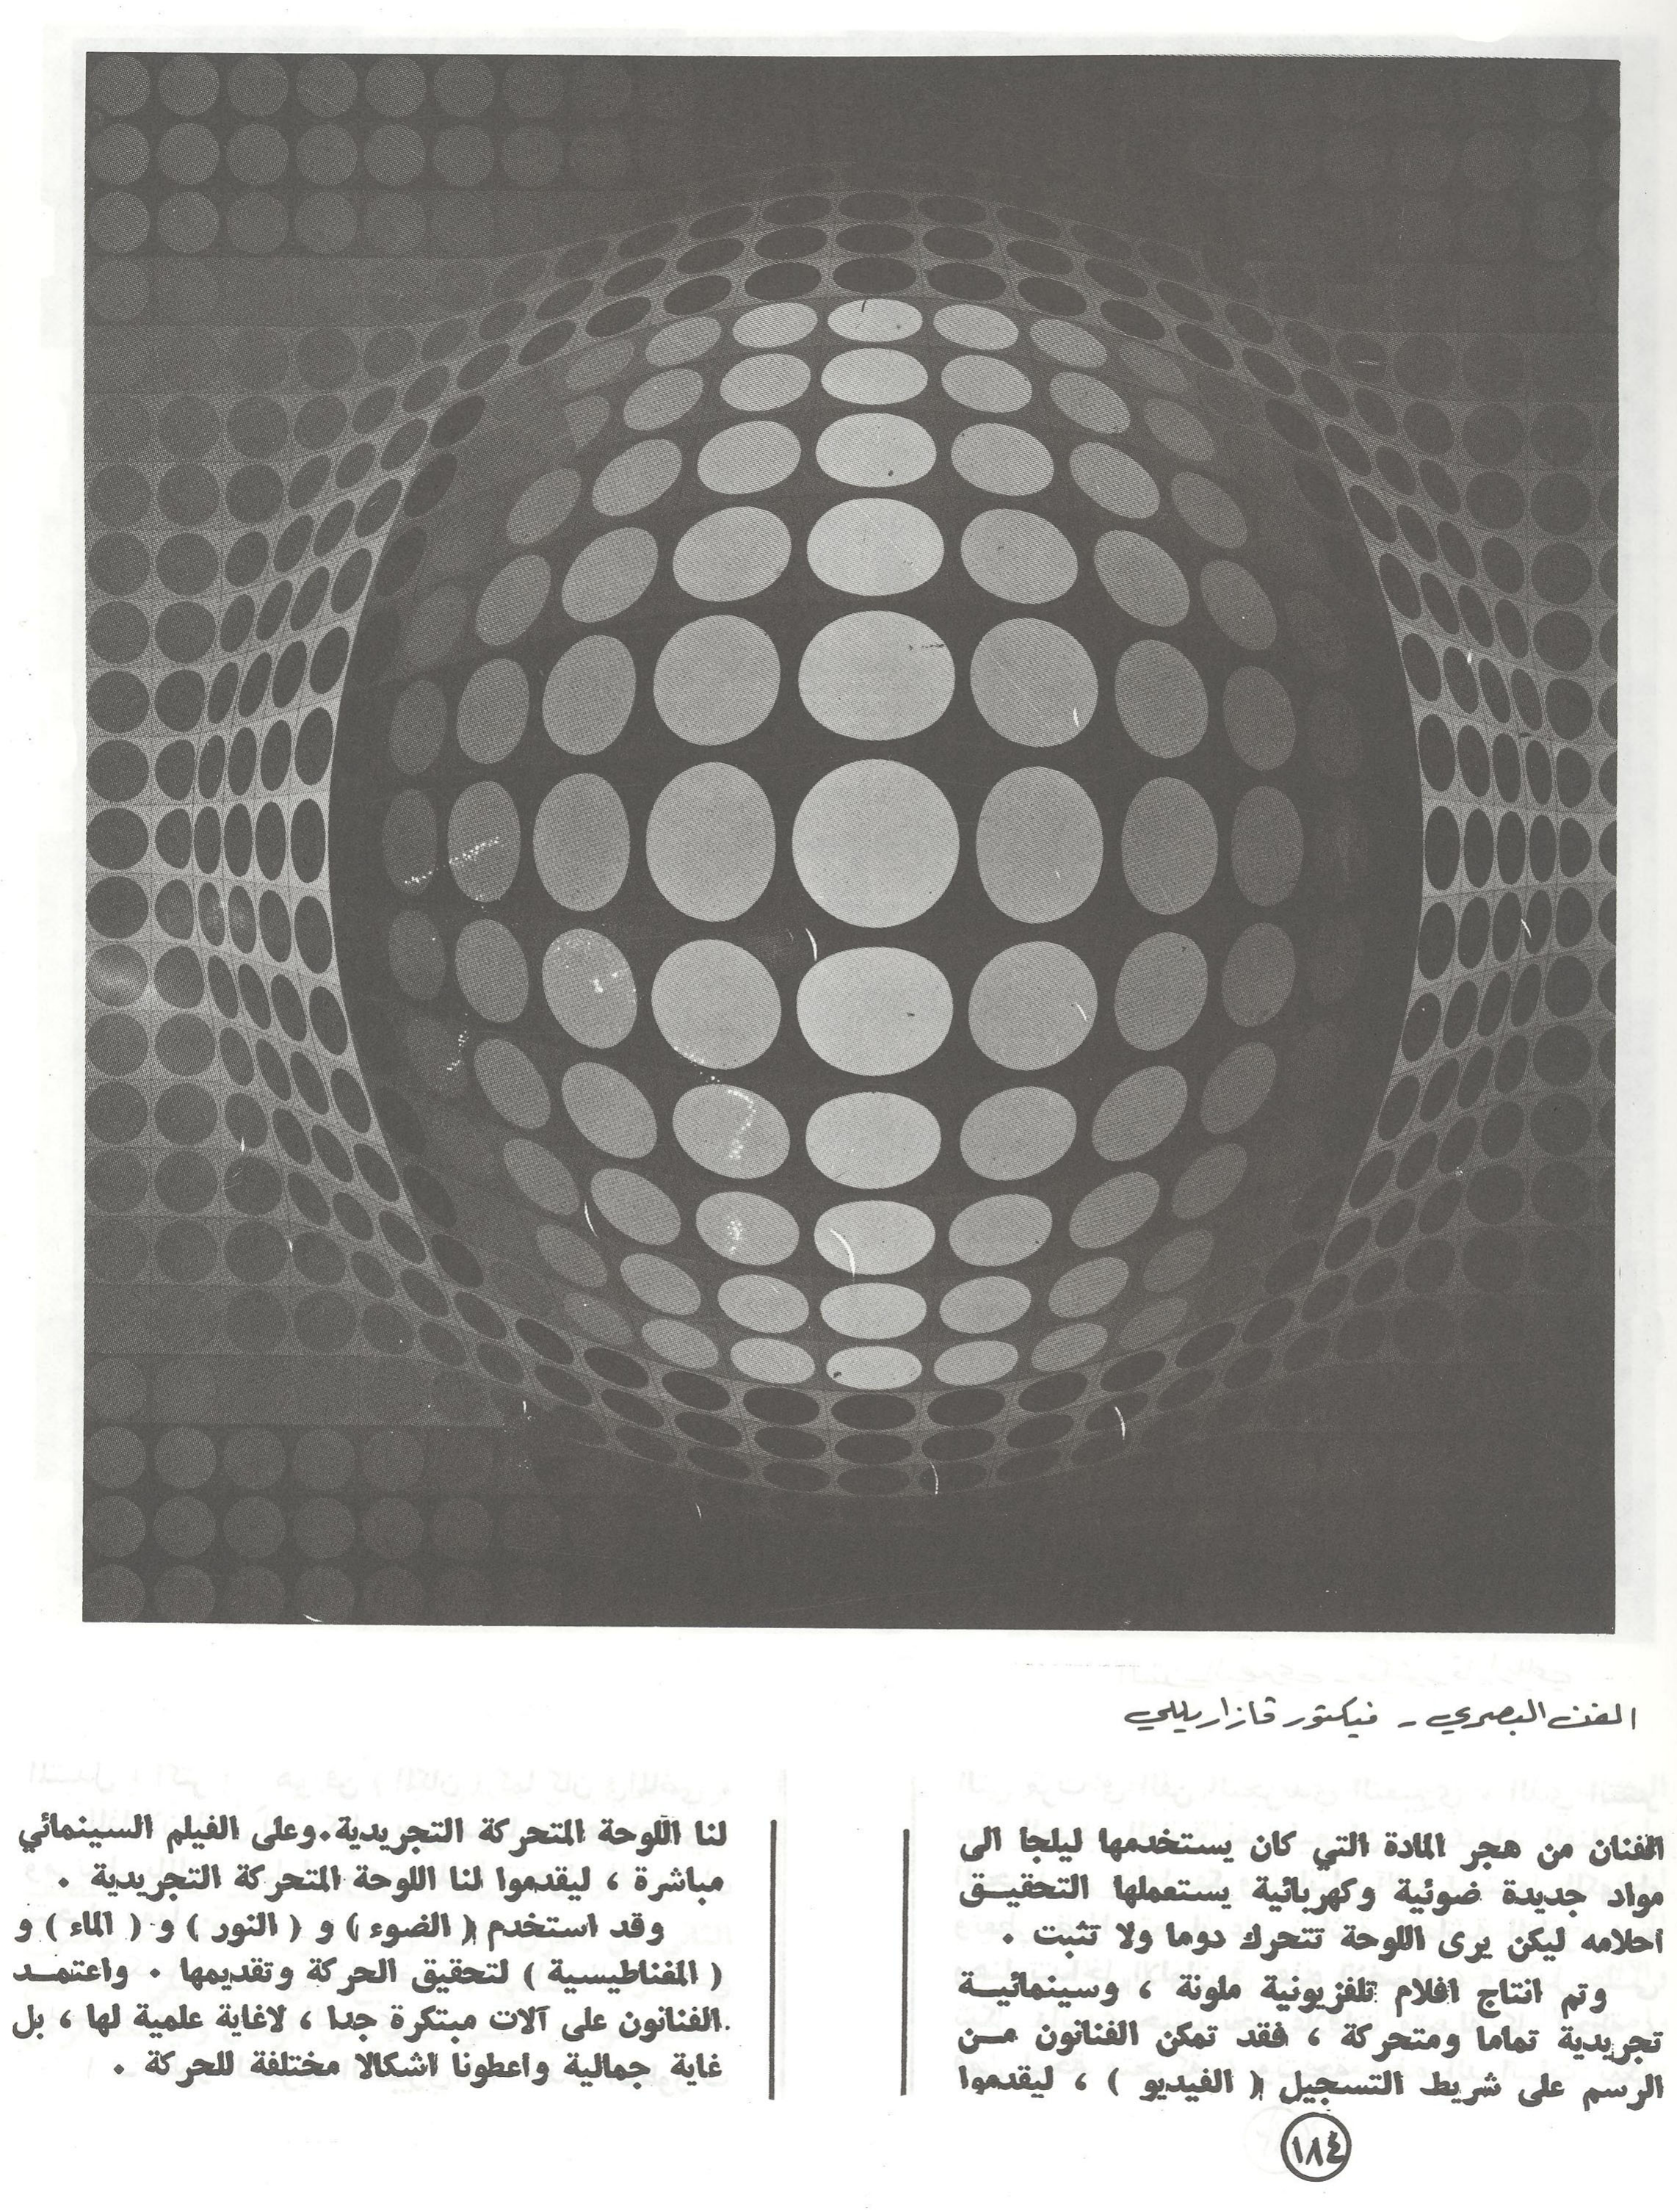 الفن البصري - فيكتور فازاريللي
الفنان من هجر المادة التي كان يستخدمها ليلجا الى
مواد جديدة ضوئية وكهربائية يستعملها التحقيـق
احلامه ليكن يرى اللوحة تتحرك دوما ولا تثبت .
وتم انتاج افلام تلفزيونية ملونة ، وسينمائيـة
تجريدية تماما ومتحركة ، فقد تمكن الفنانون مـن
الرسم على شريط التسجيل ( الفيديو ) ، ليقدموا
لنا اللوحة المتحركة التجريدية.وعلى الفيلم السينمائي
مباشرة ، ليقدموا لنا اللوحة المتحركة التجريدية .
وقد استخدم ( الضوء ) و ( النور ) و ( الماء ) و
( المغناطيسية ) لتحقيق الحركة وتقديمها . واعتمـد
الفنانون على آلات مبتكرة جدا ، لاغاية علمية لها ، بل
غاية جمالية واعطونا اشكالا مختلفة للحركة .
١٨٤